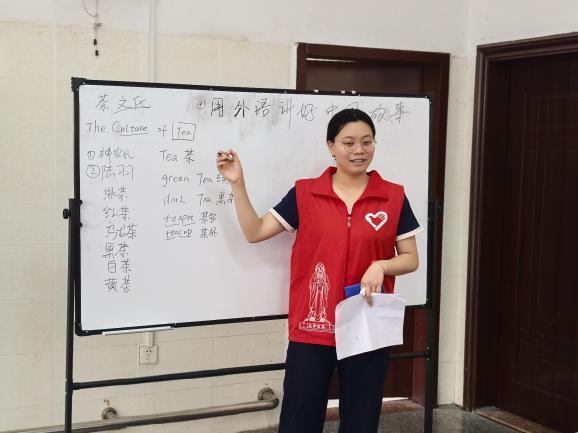 茶文化
用外语讲好中国故事
The Culture of Tea
①神农氏
②陆羽
绿茶
红茶
乌龙茶
黑茶
白茶
黄茶
Tea 茶
green Tea 绿
dark Tea 黑茶
teapot 茶壶
teacup 茶杯